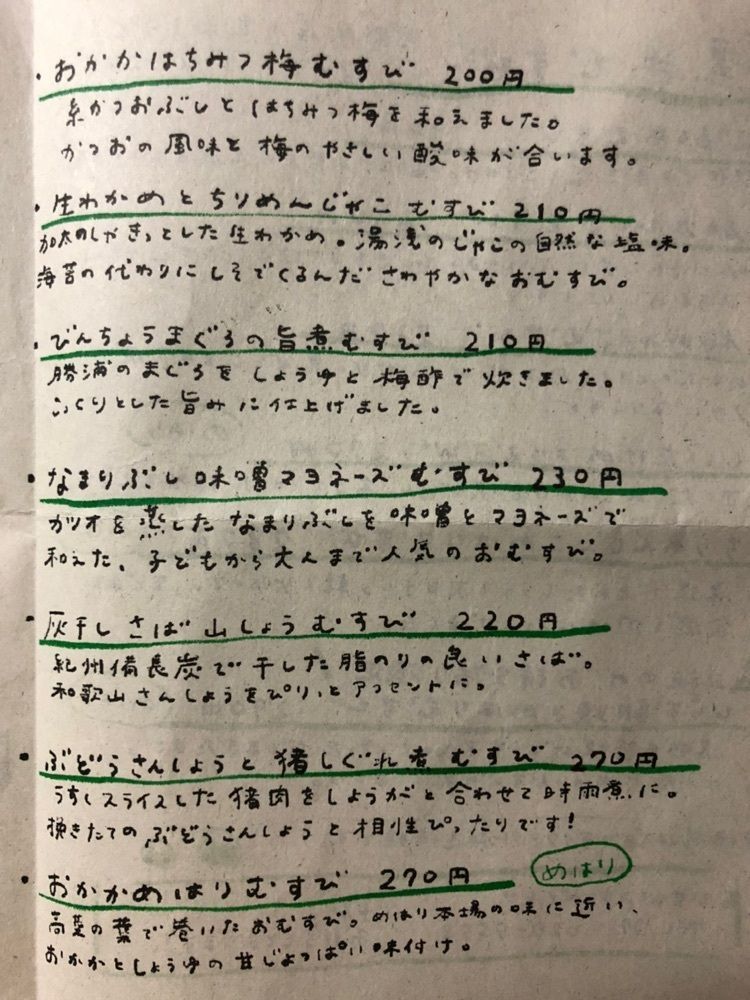 ・おかかはちみつ梅むすび 200円
糸かつおぶしとはちみつ梅を和えました。
かつおの風味と梅のやさしい酸味が合います。
・生わかめとちりめんじゃこむすび 210円
加太のしゃきっとした生わかめ。湯浅のじゃこの自然な塩味。
海苔の代わりにしそでくるんださわやかなおむすび。
・びんちょうまぐろの旨煮むすび 210円
勝浦のまぐろをしょうゆと梅酢で炊きました。
こっくりとした旨みに仕上げました。
・なまりぶし味噌マヨネーズむすび 230円
カツオを蒸したなまりぶしを味噌とマヨネーズで
和えた、子どもから大人まで人気のおむすび。
・灰干しさば山しょうむすび 220円
紀州備長炭で干した脂のりの良いさば。
和歌山さんしょうをぴりっとアクセントに。
・ぶどうさんしょうと猪しぐれ煮むすび 270円
うすくスライスした猪肉をしょうがと合わせて時雨煮に。
挽きたてのぶどうさんしょうと相性ぴったりです!
・おかかめはりむすび 270円 めはり
高菜の葉で巻いたおむすび。めはり本場の味に近い、
おかかとしょうゆの甘じょっぱい味付け。